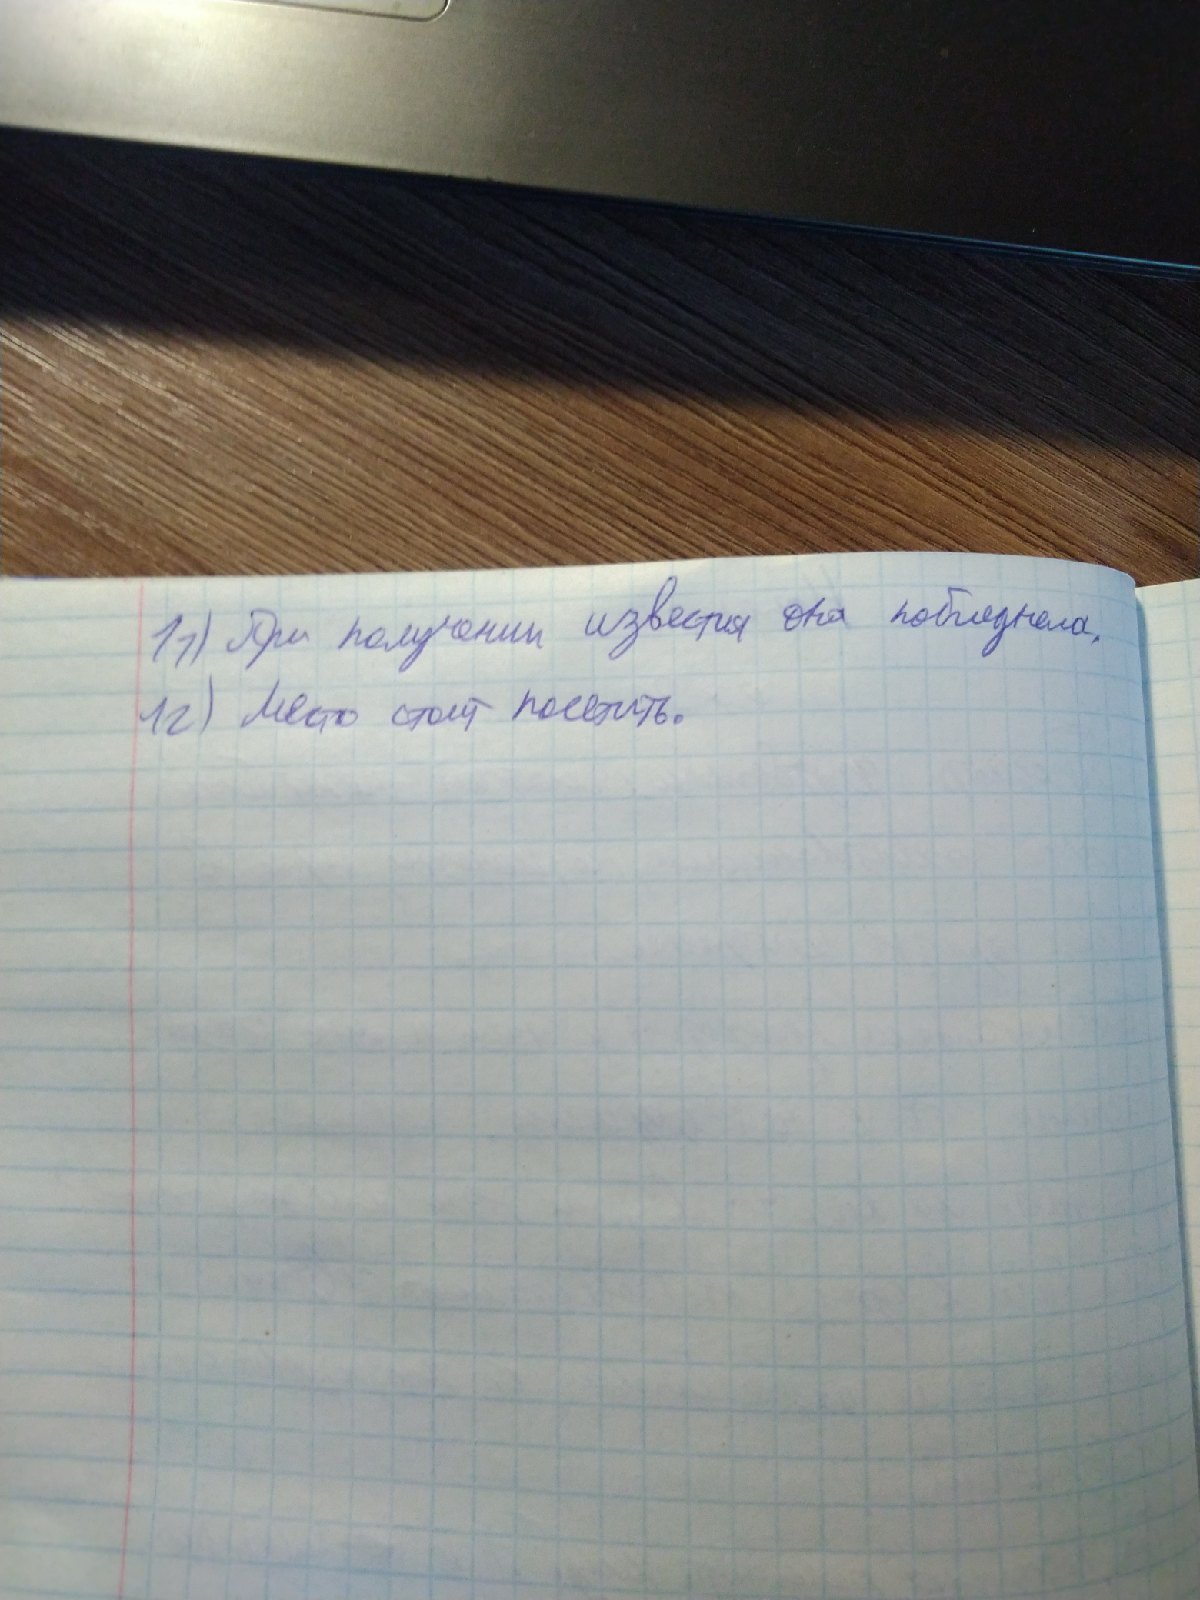 11) При получении известия она побледнела.
12) Место стоит посетить.